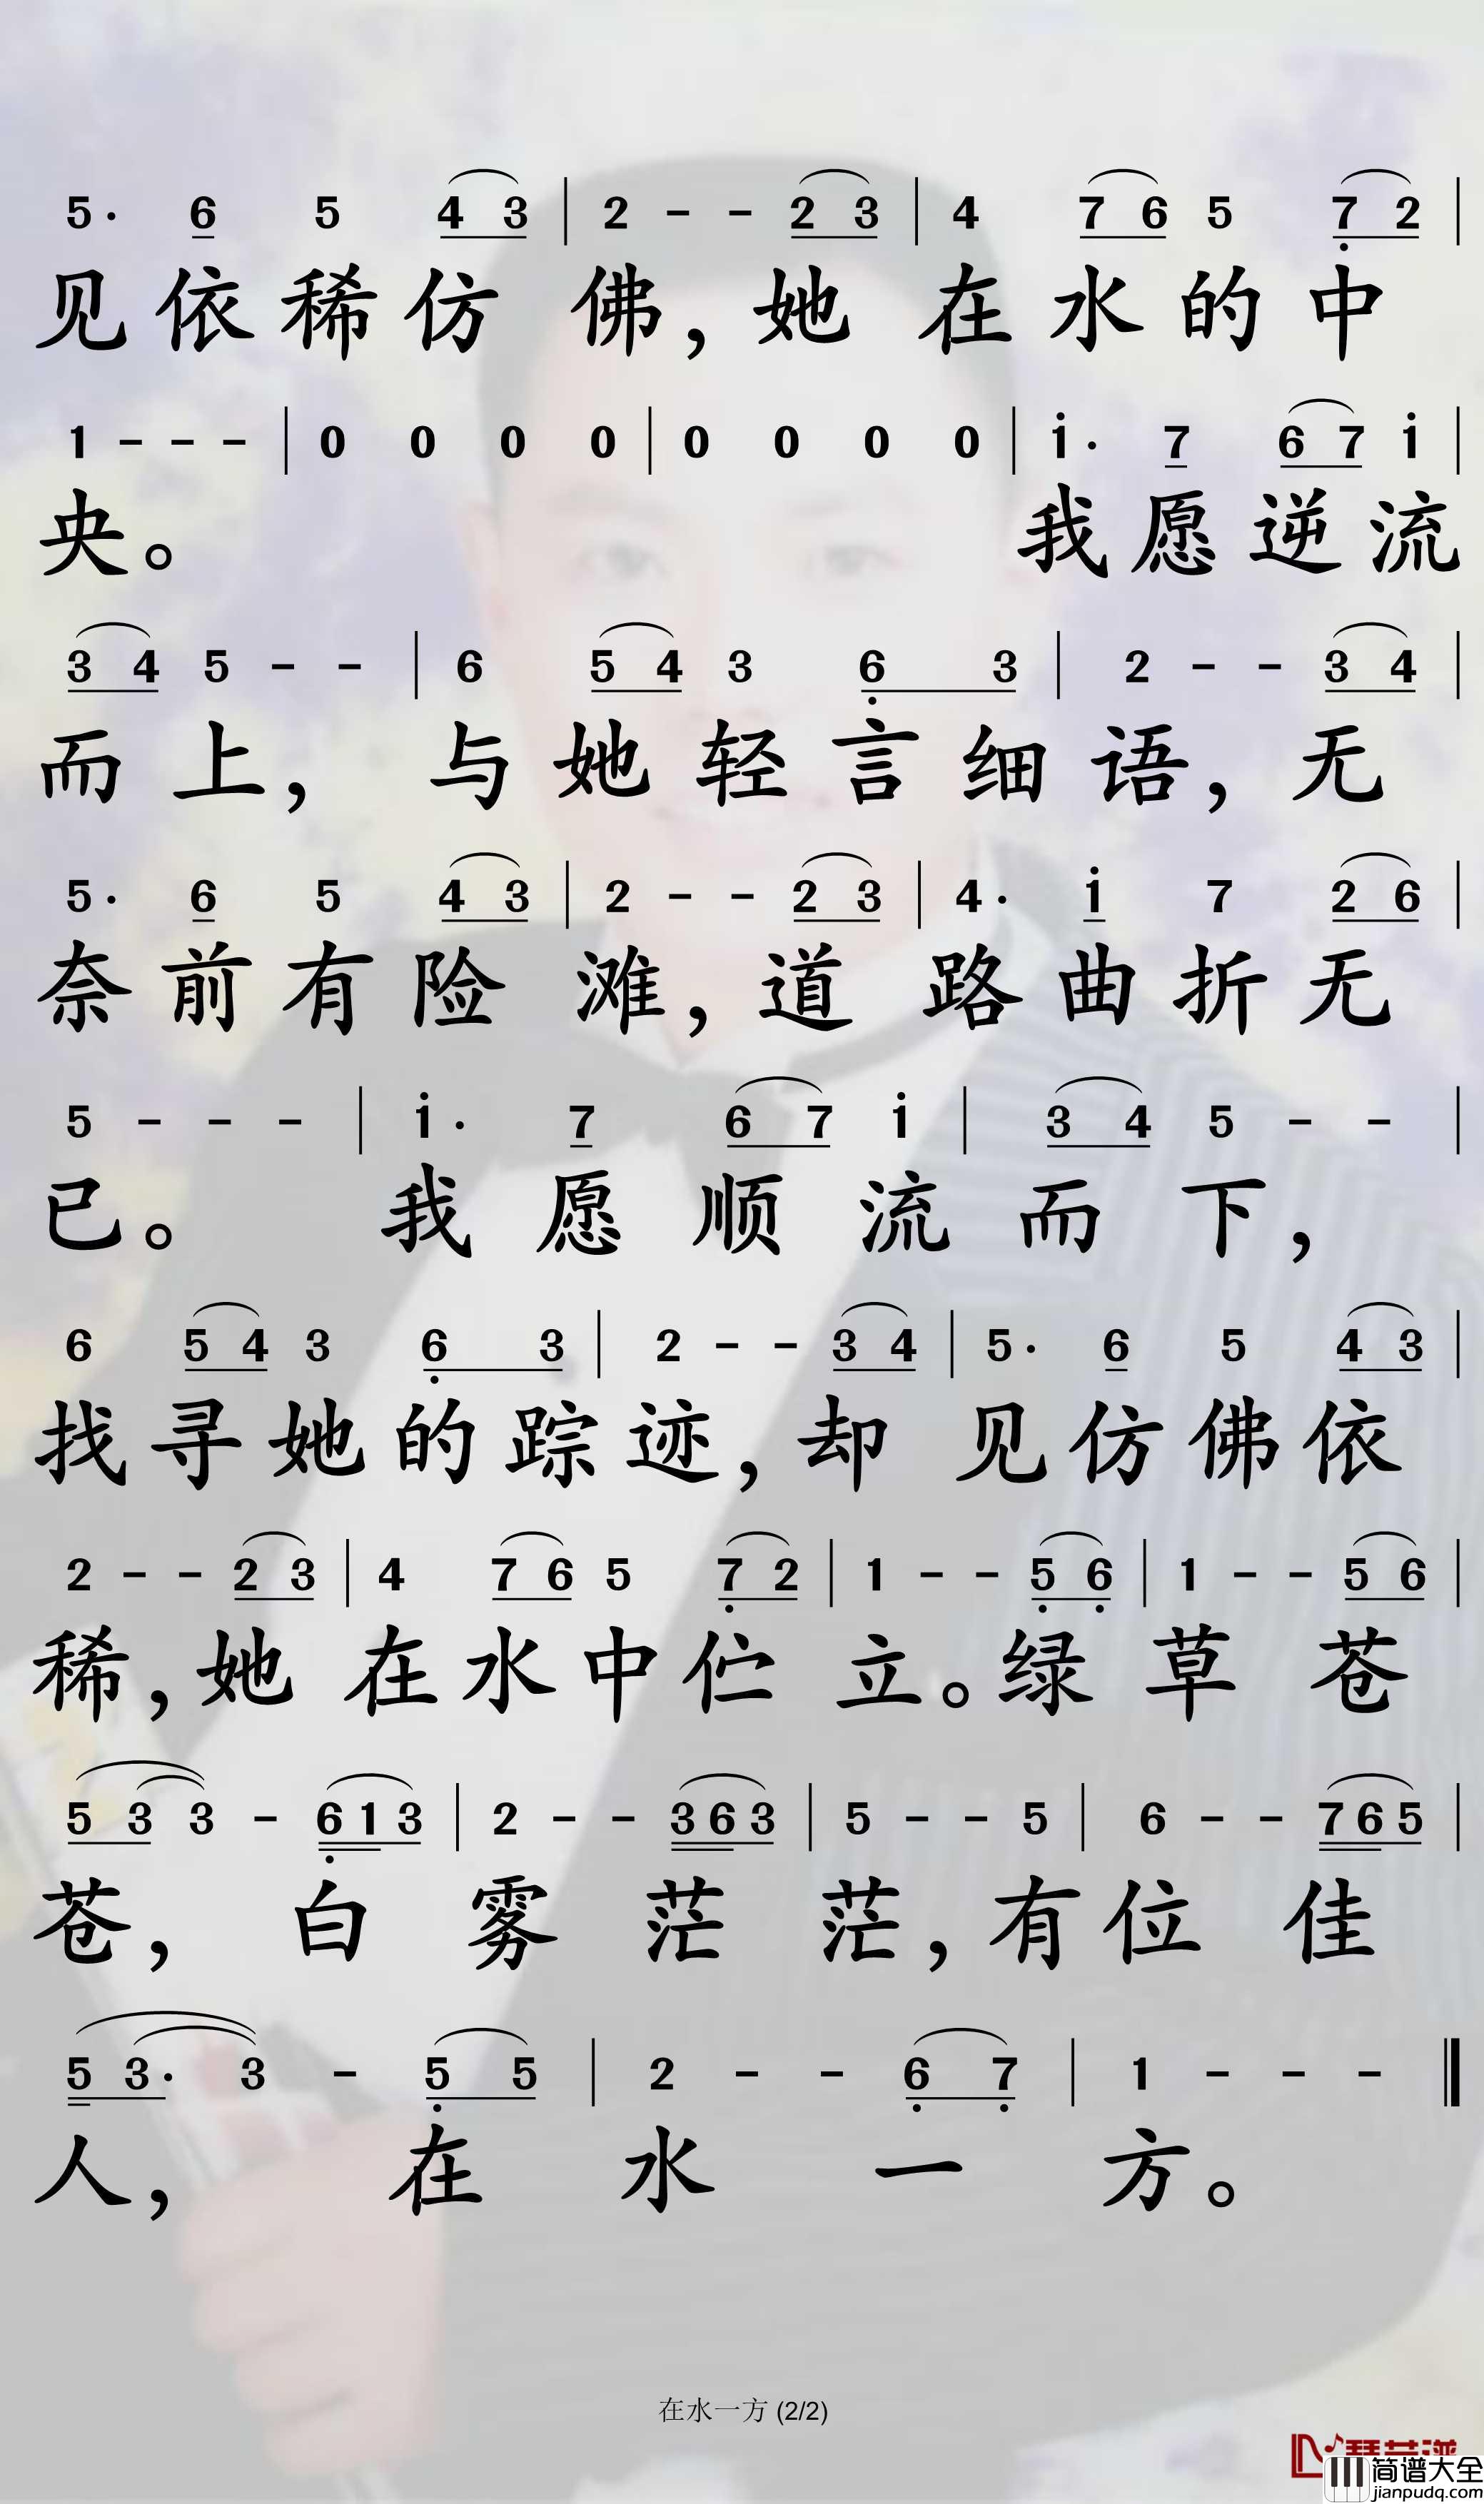 5· 6 5 4 3 | 2 - - 2 3 | 4 7 6 5 7̣ 2 |
见依稀仿 佛，她 在水的中
1 - - - | 0 0 0 0 | 0 0 0 0 | i· 7 6 7 i |
央。 我愿逆流
3 4 5 - - | 6 5 4 3 6̣ 3 | 2 - - 3 4 |
而上，与她轻言细语，无
5· 6 5 4 3 | 2 - - 2 3 | 4· i 7 2 6 |
奈前有险 滩，道 路曲折无
5 - - - | i· 7 6 7 i | 3 4 5 - - |
已。 我愿顺流而下，
6 5 4 3 6̣ 3 | 2 - - 3 4 | 5· 6 5 4 3 |
找寻她的踪迹，却 见仿佛依
2 - - 2 3 | 4 7 6 5 7̣ 2 | 1 - - 5̣ 6̣ | 1 - - 5 6 |
稀，她 在水中伫 立。绿草 苍
5 3 3 - 6̣ 1 3 | 2 - - 3 6 3 | 5 - - 5 | 6 - - 7 6 5 |
苍， 白 雾 茫 茫，有位 佳
5 3· 3 - 5̣ 5 | 2 - - 6̣ 7̣ | 1 - - - ‖
人， 在 水 一 方。
在水一方 (2/2)
简谱大全
jianpudq.com